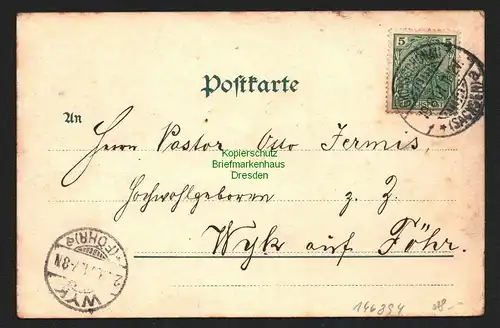 5
5
Postkarte
An
Herrn Pastor Otto Fermis,
Kopierschutz
Briefmarkenhaus
Dresden
Hochwohlgeboren z. Z.
Wyk auf Föhr.
WYK
(FÖHR)
146394